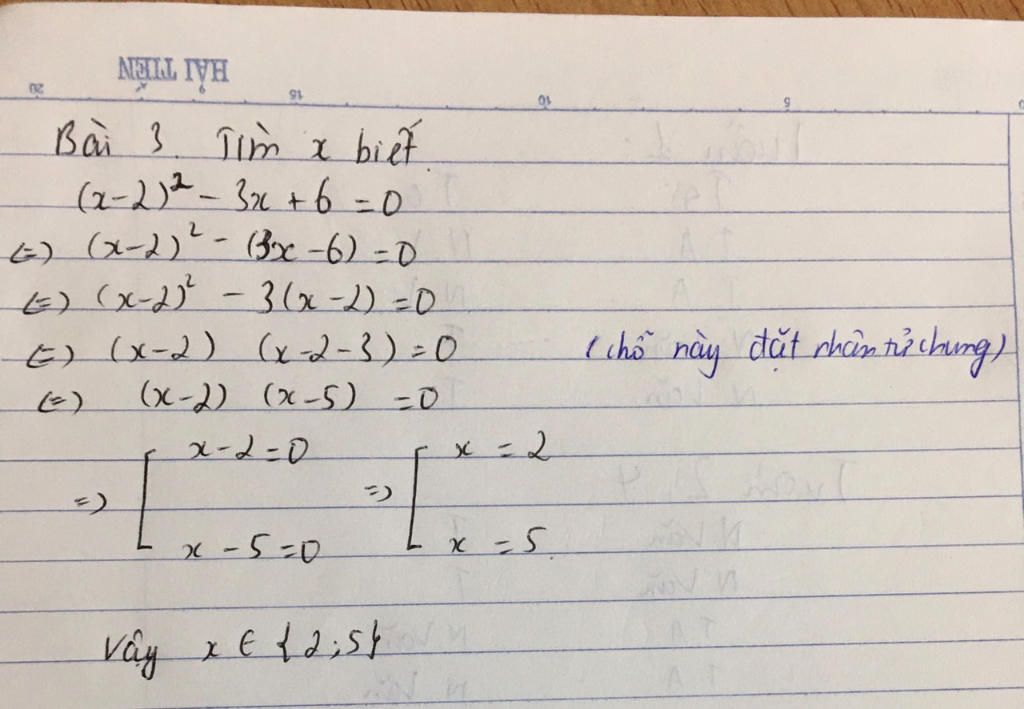 HẢI TIẾN
20 15 10 5
Bài 3. Tìm x biết
(x-2)² - 3x + 6 = 0
<=> (x-2)² - (3x - 6) = 0
<=> (x-2)² - 3(x - 2) = 0
<=> (x-2) (x-2-3) = 0 (chỗ này đặt nhân tử chung)
<=> (x-2) (x-5) = 0
=> [ x-2=0 => [ x = 2
x - 5 = 0 x = 5
Vậy x ∈ {2;5}